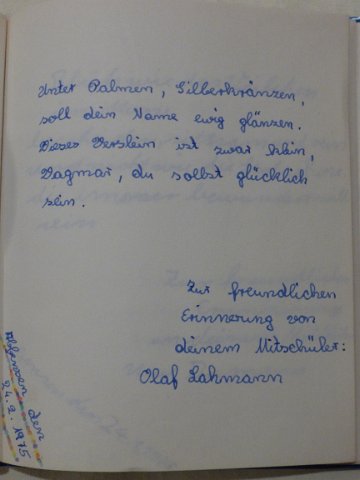 Unter Palmen, Silberkränzen,
soll dein Name ewig glänzen.
Dieses Verslein ist zwar klein,
Dagmar, du sollst glücklich
sein.
Zur freundlichen
Erinnerung von
deinem Mitschüler:
Olaf Lahmann
den
24.2.1975